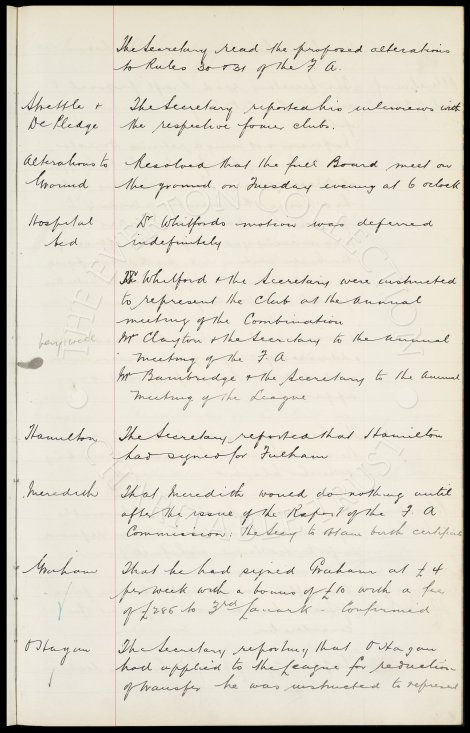 The Secretary read the proposed alterations
to Rules 30 & 31 of the F. A.
Strettle &
De Pledge
The Secretary reported his interviews with
the respective former clubs.
Alterations to
Ground
Resolved that the full Board meet on
the ground on Tuesday evening at 6 oclock
Hospital
bed
Dr Whitfords motion was deferred
indefinitely
Dr Whitford & the Secretary were instructed
to represent the Club at the annual
meeting of the Combination
Mr Clayton & the Secretary to the annual
meeting of the F. A
Mr Bainbridge & the Secretary to the Annual
Meeting of the League
Hamilton
The Secretary reported that Hamilton
had signed for Fulham
Meredith
That Meredith would do nothing until
after the issue of the Report of the F. A
Commission: the Secy to obtain birth certificate
Graham
That he had signed Graham at £4
per week with a bonus of £10 with a fee
of £285 to 3rd Lanark - Confirmed
O'Hagan
The Secretary reporting that O'Hagan
had applied to the League for reduction
of transfer he was instructed to represent
THE EVERTON COLLECTION
CHARITABLE TRUST